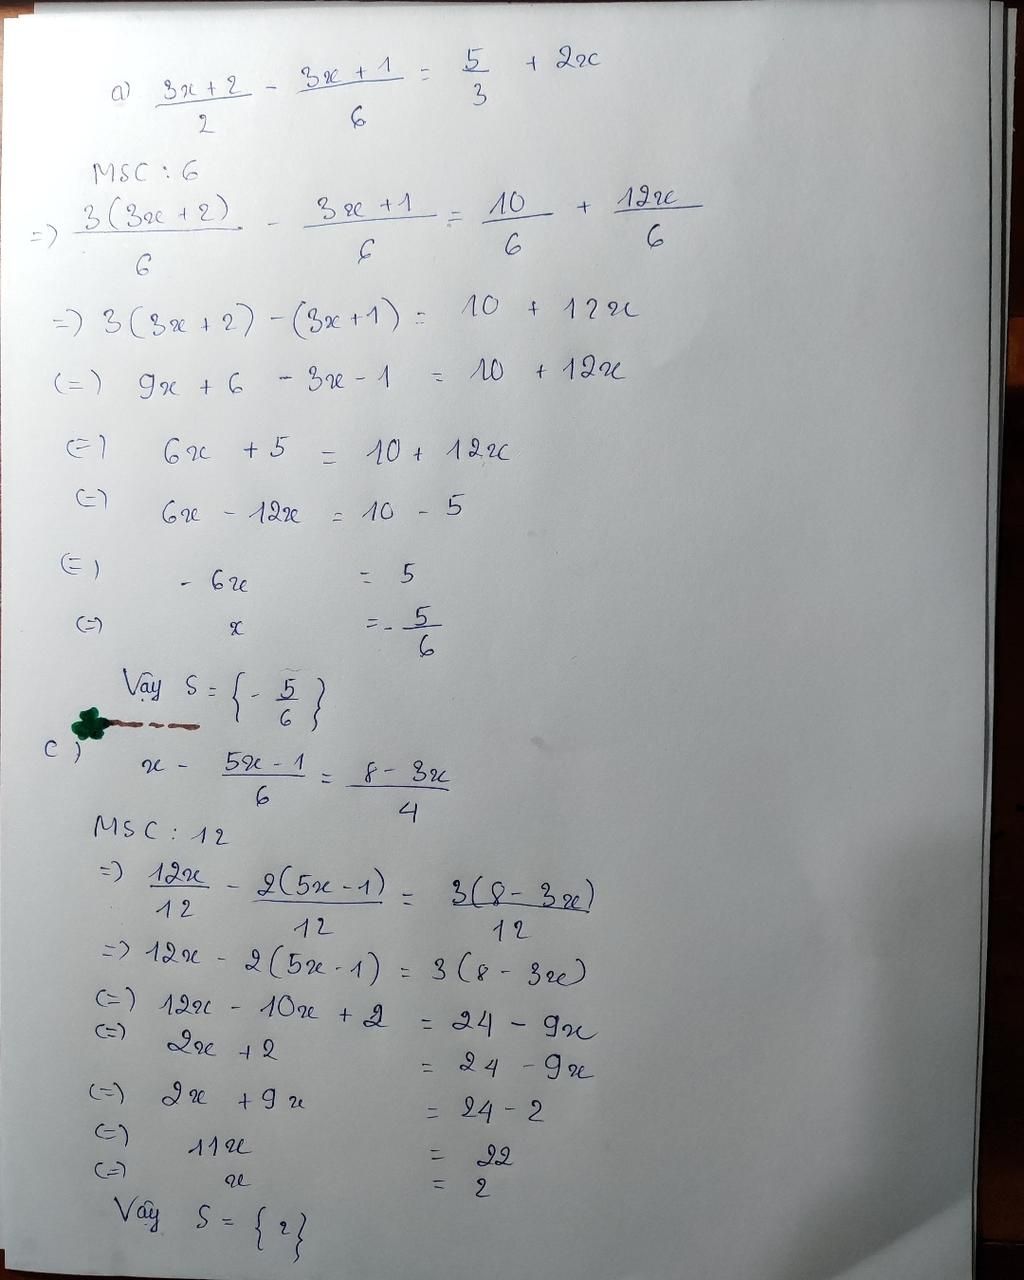 a) (3x + 2)/2 - (3x + 1)/6 = 5/3 + 2x
MSC : 6
=) 3(3x + 2)/6 - (3x + 1)/6 = 10/6 + 12x/6
=) 3(3x + 2) - (3x + 1) = 10 + 12x
(=) 9x + 6 - 3x - 1 = 10 + 12x
(=) 6x + 5 = 10 + 12x
(=) 6x - 12x = 10 - 5
(=) - 6x = 5
(=) x = - 5/6
Vậy S = { - 5/6 }
c) x - (5x - 1)/6 = (8 - 3x)/4
MSC : 12
=) 12x/12 - 2(5x - 1)/12 = 3(8 - 3x)/12
=) 12x - 2(5x - 1) = 3(8 - 3x)
(=) 12x - 10x + 2 = 24 - 9x
(=) 2x + 2 = 24 - 9x
(=) 2x + 9x = 24 - 2
(=) 11x = 22
(=) x = 2
Vậy S = { 2 }